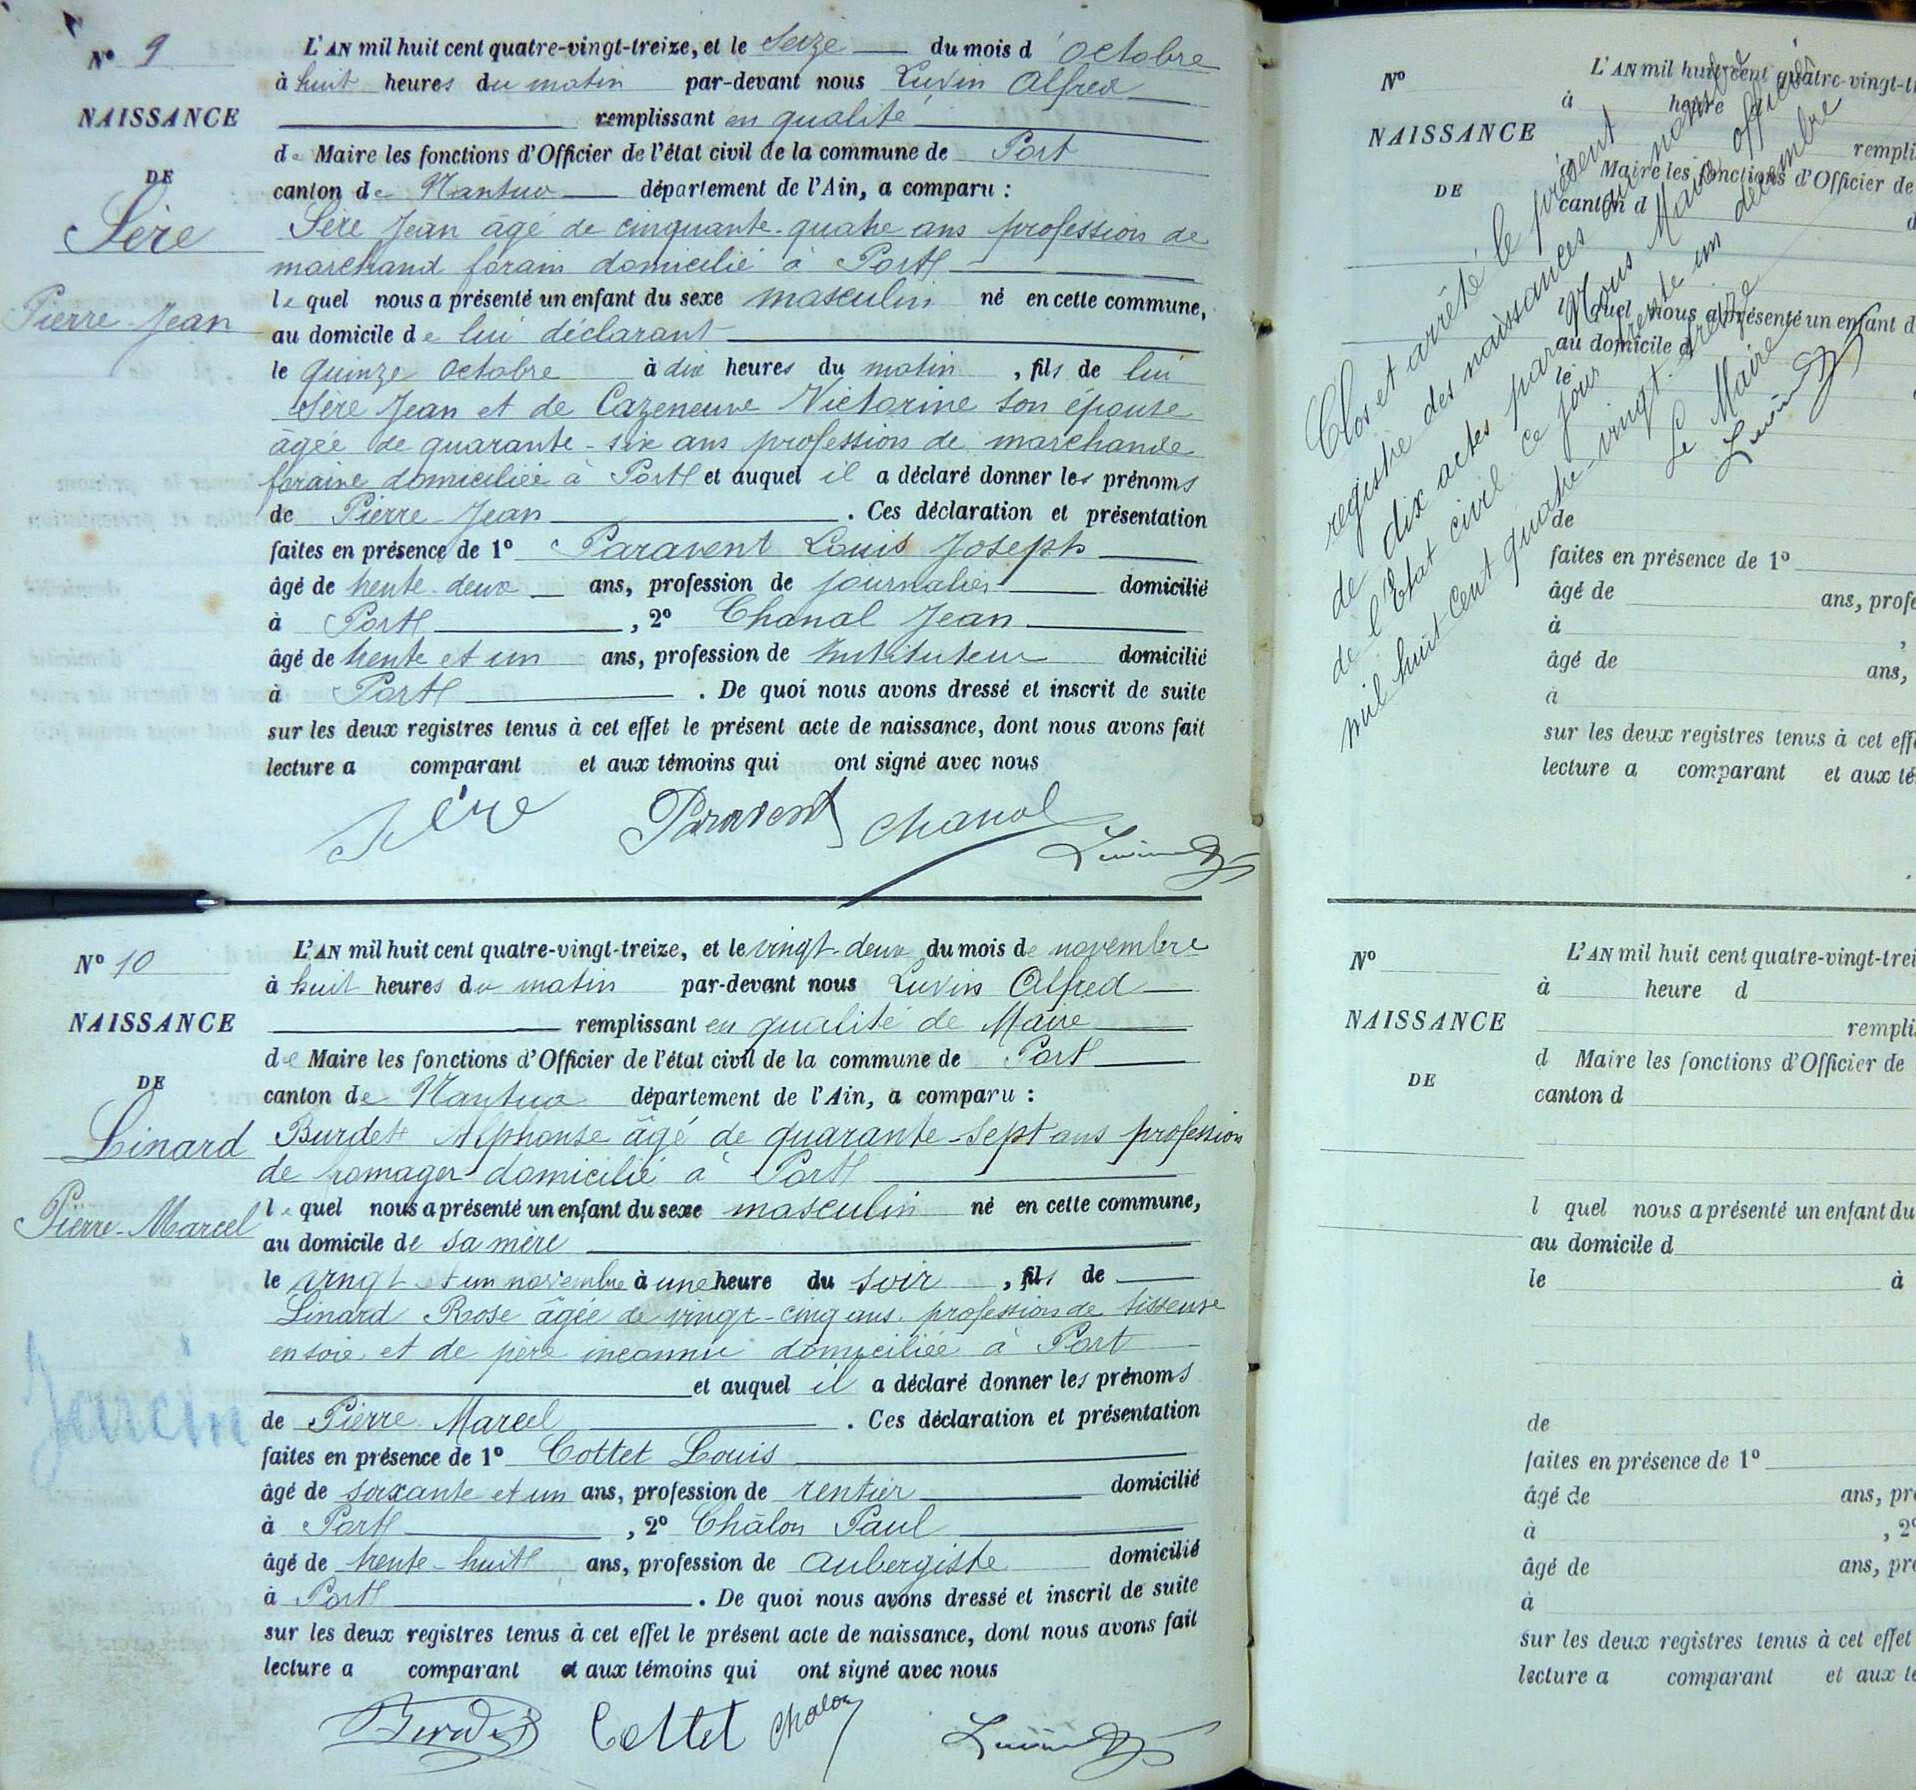 N° 9
NAISSANCE
DE
Sère
Pierre Jean
L'AN mil huit cent quatre-vingt-treize, et le Seize du mois d'octobre
à huit heures du matin par-devant nous Luvin Alfred
remplissant en qualité
de Maire les fonctions d'Officier de l'état civil de la commune de Port
canton de Nantua département de l'Ain, a comparu :
Sère Jean âgé de cinquante-quatre ans profession de
marchand forain domicilié à Port
le quel nous a présenté un enfant du sexe masculin né en cette commune,
au domicile de lui déclarant
le quinze octobre à dix heures du matin, fils de lui
Sère Jean et de Cazeneuve Victorine son épouse
âgée de quarante-six ans profession de marchande
foraine domiciliée à Port et auquel il a déclaré donner les prénoms
de Pierre Jean. Ces déclaration et présentation
faites en présence de 1° Paravent Louis Joseph
âgé de trente-deux ans, profession de journalier domicilié
à Port, 2° Chanal Jean
âgé de trente et un ans, profession de Instituteur domicilié
à Port. De quoi nous avons dressé et inscrit de suite
sur les deux registres tenus à cet effet le présent acte de naissance, dont nous avons fait
lecture a comparant et aux témoins qui ont signé avec nous
Sère Paravent Chanal Luvin
N° 10
NAISSANCE
DE
Linard
Pierre-Marcel
L'AN mil huit cent quatre-vingt-treize, et le vingt-deux du mois de novembre
à huit heures du matin par-devant nous Luvin Alfred
remplissant en qualité de Maire
de Maire les fonctions d'Officier de l'état civil de la commune de Port
canton de Nantua département de l'Ain, a comparu :
Burdet Alphonse âgé de quarante-sept ans profession
de fromager domicilié à Port
le quel nous a présenté un enfant du sexe masculin né en cette commune,
au domicile de sa mère
le vingt et un novembre à une heure du soir, fils de
Linard Rose âgée de vingt-cinq ans profession de tisseuse
en soie et de père inconnu domiciliée à Port
et auquel il a déclaré donner les prénoms
de Pierre Marcel. Ces déclaration et présentation
faites en présence de 1° Cottet Louis
âgé de soixante et un ans, profession de rentier domicilié
à Port, 2° Châlon Paul
âgé de trente-huit ans, profession de aubergiste domicilié
à Port. De quoi nous avons dressé et inscrit de suite
sur les deux registres tenus à cet effet le présent acte de naissance, dont nous avons fait
lecture a comparant et aux témoins qui ont signé avec nous
Burdet Cottet Chalon Luvin
N°
NAISSANCE
DE
L'AN mil huit cent quatre-vingt-t
à heure
rempli
Maire les fonctions d'Officier de
canton d
quel nous a présenté un enfant d
au domicile d
le
de
faites en présence de 1°
âgé de ans, profe
à ,
âgé de ans,
à
sur les deux registres tenus à cet eff
lecture a comparant et aux té
Clos et arrêté le présent
registre des naissances au nombre
de dix actes par Nous Maire officier
de l'Etat civil ce jour trente un décembre
mil huit cent quatre-vingt-treize
Le Maire
Luvin
N°
NAISSANCE
DE
L'AN mil huit cent quatre-vingt-trei
à heure d
rempli
d Maire les fonctions d'Officier de
canton d
l quel nous a présenté un enfant du
au domicile d
le à
de
faites en présence de 1°
âgé de ans, pro
à , 2°
âgé de ans, pro
à
sur les deux registres tenus à cet effet
lecture a comparant et aux té